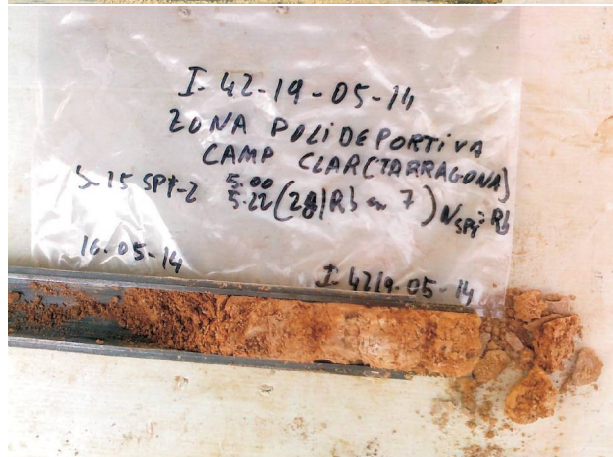 I-42-19-05-14
ZONA POLIDEPORTIVA
CAMP CLAR (TARRAGONA)
S-15 SPT-2 5.00
5.22 (28/Rb en 7) NSPT=Rb
16-05-14
I-4219-05-14